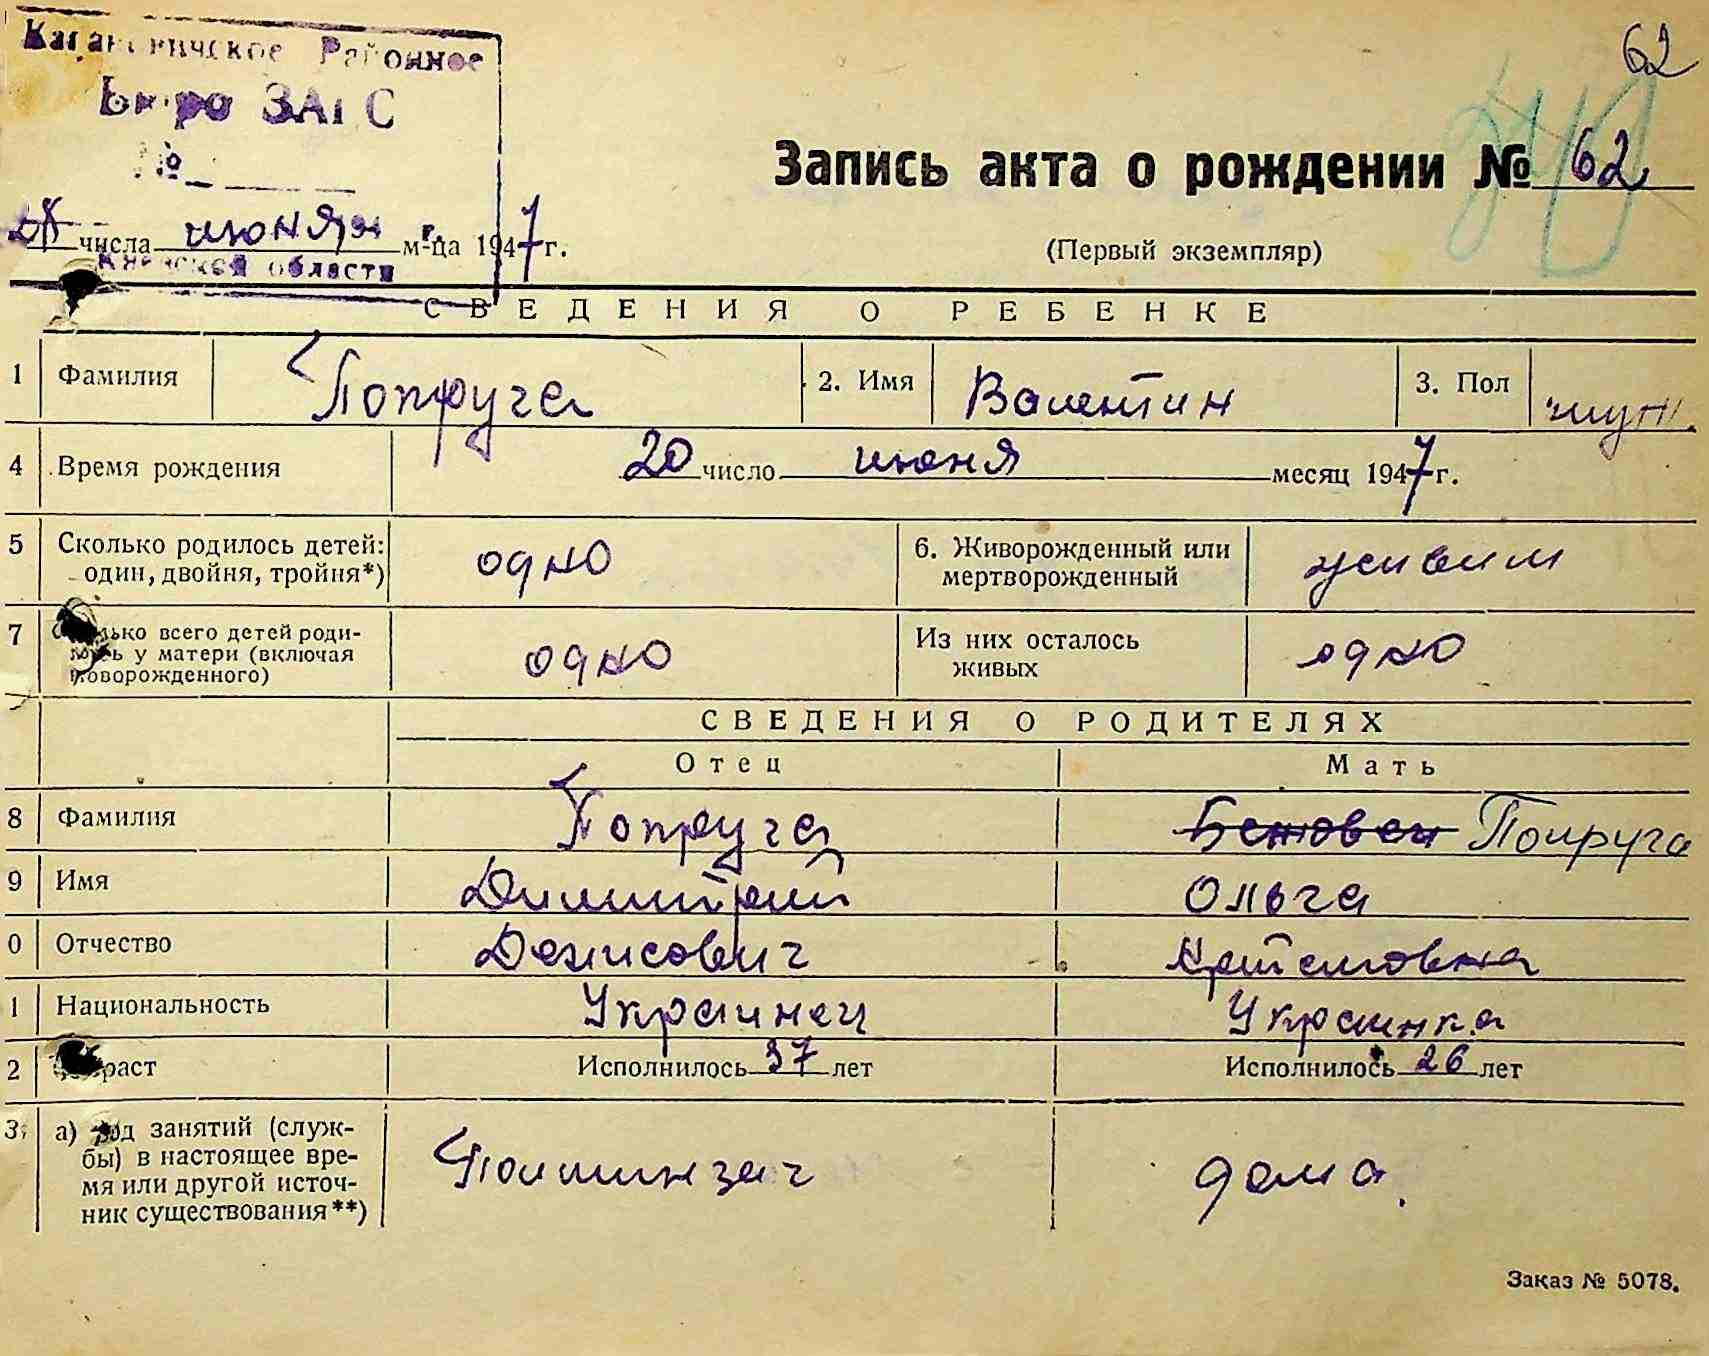 62
Кагановичское Районное
Бюро ЗАГС
№
Запись акта о рождении № 62
28 числа июня м-ца 1947 г.
(Первый экземпляр)
Киевской области
СВЕДЕНИЯ О РЕБЕНКЕ
1 Фамилия Попруга 2. Имя Валентин 3. Пол муж.
4 Время рождения 20 число июня месяц 1947 г.
5 Сколько родилось детей: один, двойня, тройня*) одно 6. Живорожденный или мертворожденный живим
7 Сколько всего детей родилось у матери (включая новорожденного) одно Из них осталось живых одно
СВЕДЕНИЯ О РОДИТЕЛЯХ
Отец Мать
8 Фамилия Попруга Попруга
9 Имя Димитрий Ольга
0 Отчество Денисович Артемовна
1 Национальность Украинец Украинка
2 Возраст Исполнилось 37 лет Исполнилось 26 лет
3 а) род занятий (служ-
бы) в настоящее вре-
мя или другой источ-
ник существования**) дома.
Заказ № 5078.